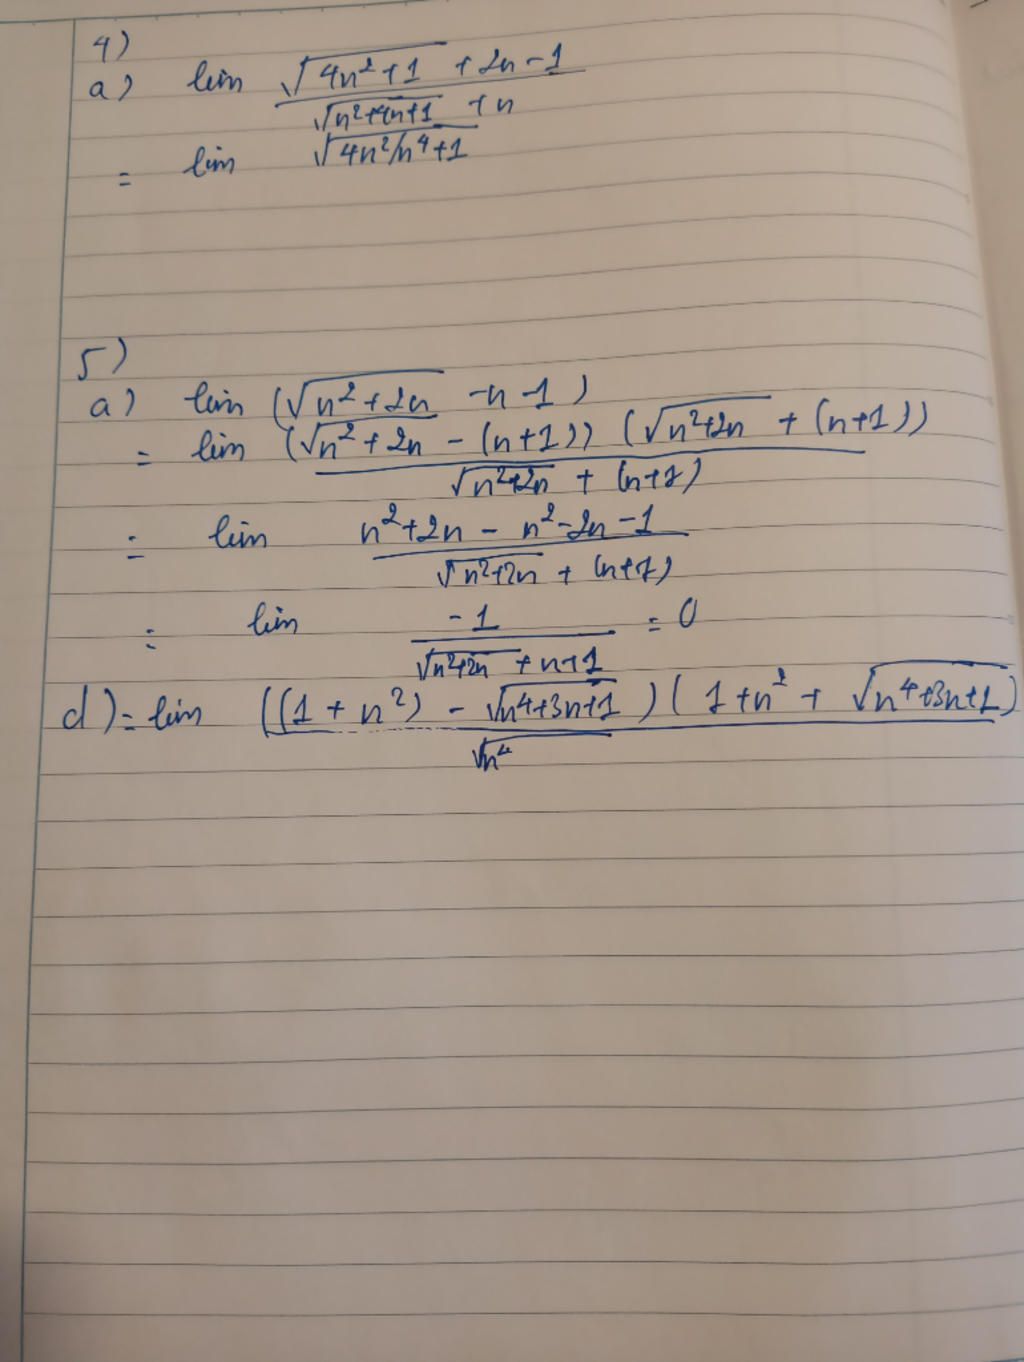 4)
a) lim (√(4n²+1) + 2n - 1) / (√(n²+4n+1) + n)
= lim √(4n²/n⁴+1)
5)
a) lim (√(n²+2n) - n - 1)
= lim (√(n²+2n) - (n+1)) (√(n²+2n) + (n+1)) / (√(n²+2n) + (n+1))
= lim (n²+2n - n² - 2n - 1) / (√(n²+2n) + (n+1))
= lim -1 / (√(n²+2n) + n+1) = 0
d) = lim ((1 + n²) - √(n⁴+3n+1)) (1 + n² + √(n⁴+3n+1)) / √n⁴